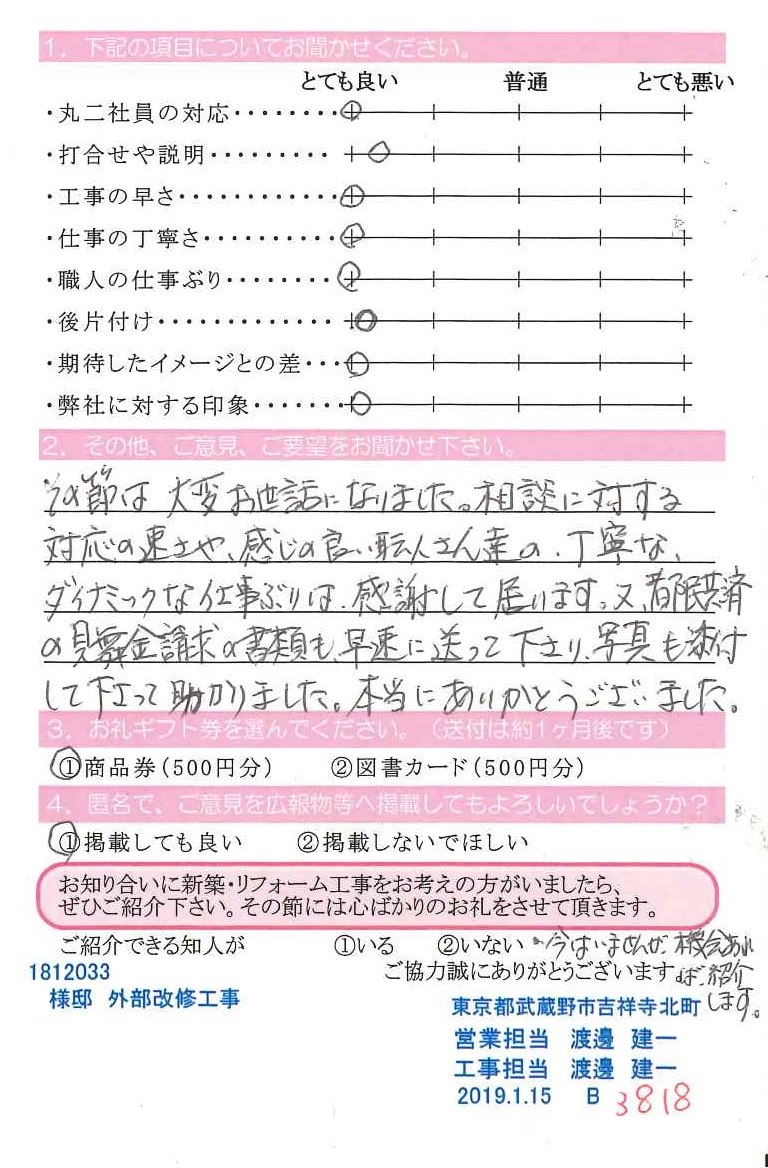 1. 下記の項目についてお聞かせください。
とても良い 普通 とても悪い
・丸二社員の対応・・・・・・・・
・打合せや説明・・・・・・・・・
・工事の早さ・・・・・・・・・・・・
・仕事の丁寧さ・・・・・・・・・・
・職人の仕事ぶり・・・・・・・・
・後片付け・・・・・・・・・・・・・
・期待したイメージとの差・・・
・弊社に対する印象・・・・・・・
2. その他、ご意見、ご要望をお聞かせ下さい。
その節は大変お世話になりました。相談に対する
対応の速さや、感じの良い職人さん達の、丁寧な、
ダイナミックな仕事ぶりは、感謝して居ります。又、都民共済
の見舞金請求の書類も、早速に送って下さり、写真も添付
して下さって助かりました。本当にありがとうございました。
3. お礼ギフト券を選んでください。（送付は約1ヶ月後です）
①商品券(500円分) ②図書カード(500円分)
4. 匿名で、ご意見を広報物等へ掲載してもよろしいでしょうか？
①掲載しても良い ②掲載しないでほしい
お知り合いに新築・リフォーム工事をお考えの方がいましたら、
ぜひご紹介下さい。その節には心ばかりのお礼をさせて頂きます。
ご紹介できる知人が ①いる ②いない 今はいませんが、機会あれ
ば、紹介
します。
ご協力誠にありがとうございます
1812033
様邸 外部改修工事
東京都武蔵野市吉祥寺北町
営業担当 渡邊 建一
工事担当 渡邊 建一
2019.1.15 B 3818